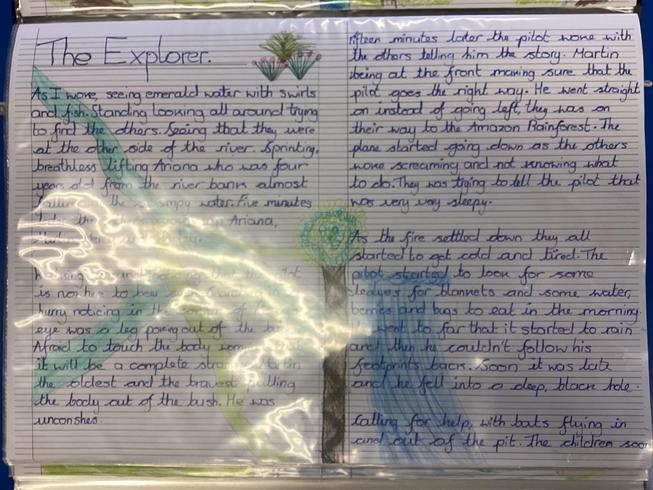 The Explorer.
As I woke, seeing emerald water with swirls
and fish. Standing looking all around trying
to find the others. Seeing that they were
at the other side of the river. Sprinting,
breathless lifting Ariana who was four
years old from the river bank almost
water. Five minutes
Ariana,
is nowhere to be
hurry noticing in the of
eye was a leg poking out of the
Afraid to touch the body
it will be a complete
the oldest and the bravest pulling
the body out of the bush. He was
unconshes.
fifteen minutes later the pilot woke with
the others telling him the story. Martin
being at the front making sure that the
pilot goes the right way. He went straight
on instead of going left, they was on
their way to the Amazon Rainforest. The
plane started going down as the others
woke screaming and not knowing what
to do. They was trying to tell the pilot that
was very very sleepy.
As the fire settled down they all
started to get cold and tired. The
pilot started to look for some
leaves for blankets and some water,
berries and bugs to eat in the morning.
went to far that it started to rain
and then he couldn't follow his
footprints back. Soon it was late
and he fell into a deep, black hole.
Calling for help, with bats flying in
and out of the pit. The children soon